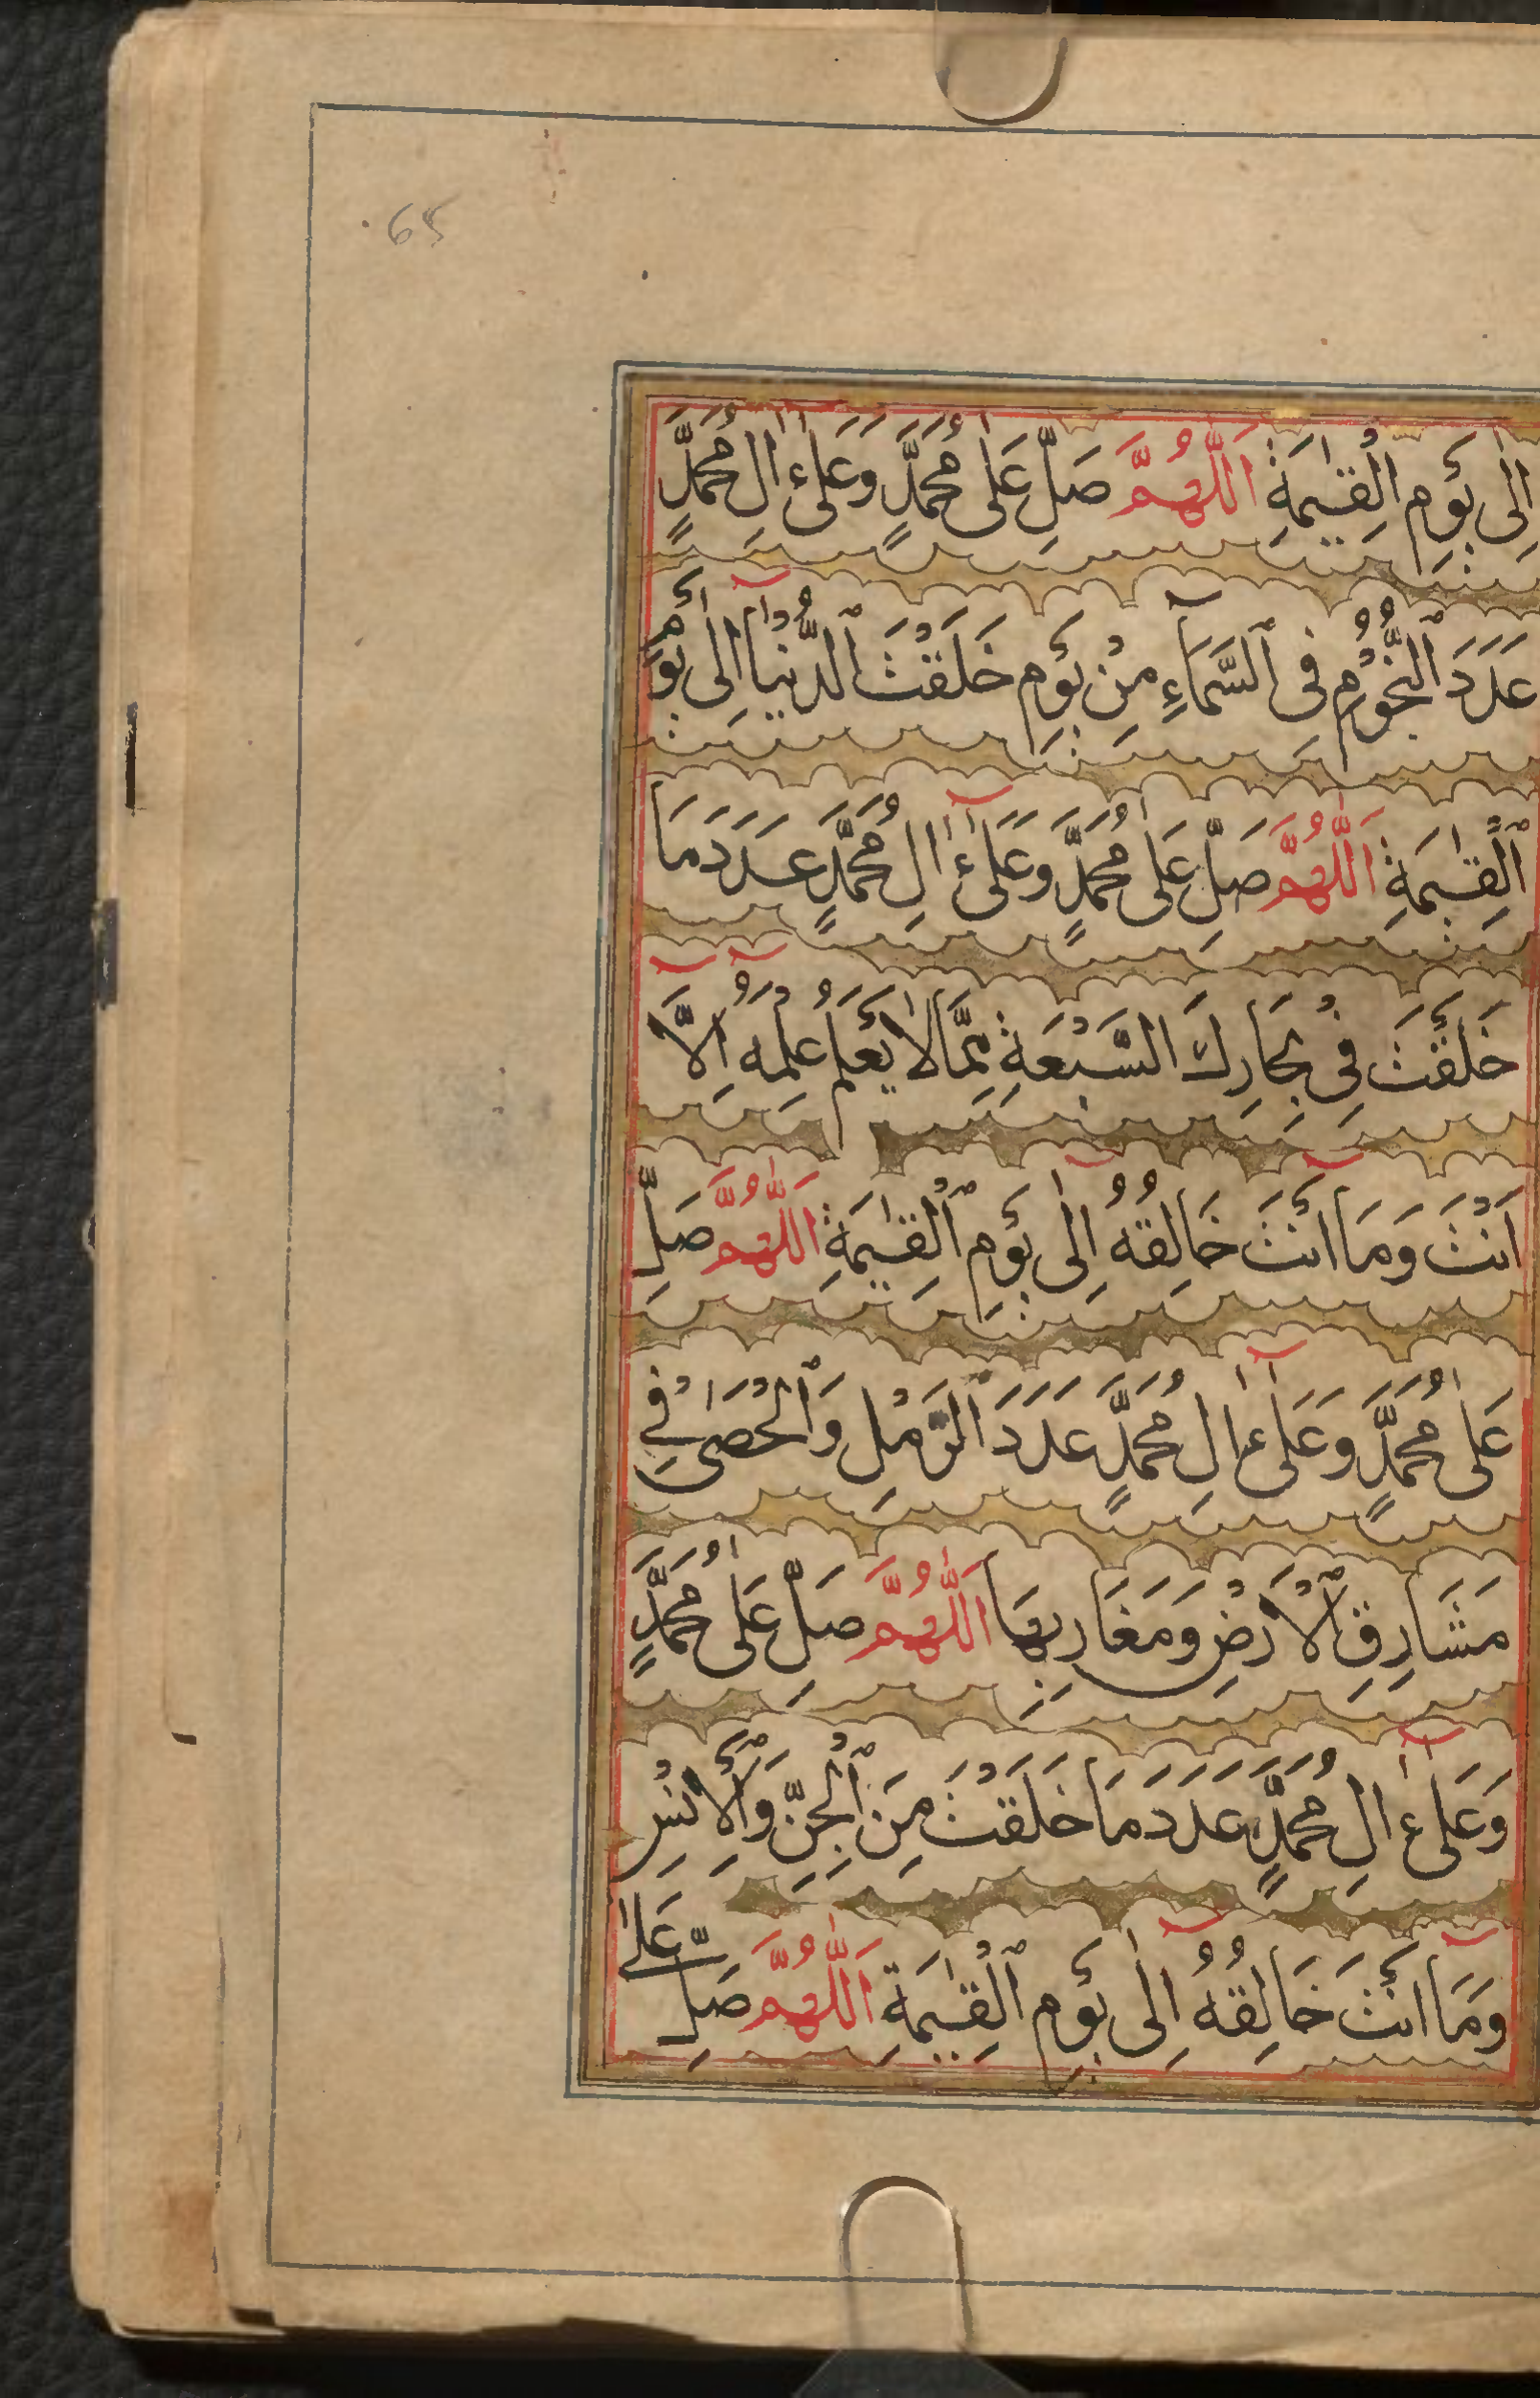 65.
اِلٰى يَوْمِ الْقِيٰمَةِ اَللّٰهُمَّ صَلِّ عَلٰى مُحَمَّدٍ وَعَلٰٓى اٰلِ مُحَمَّدٍ
عَدَدَ النُّجُوْمِ فِى السَّمَآءِ مِنْ يَوْمِ خَلَقْتَ الدُّنْيَآ اِلٰى يَوْمِ
الْقِيٰمَةِ اَللّٰهُمَّ صَلِّ عَلٰى مُحَمَّدٍ وَعَلٰٓى اٰلِ مُحَمَّدٍ عَدَدَ مَا
خَلَقْتَ فِىْ بِحَارِكَ السَّبْعَةِ مِمَّا لَا يَعْلَمُ عِلْمَهٗٓ اِلَّآ
اَنْتَ وَمَآ اَنْتَ خَالِقُهٗٓ اِلٰى يَوْمِ الْقِيٰمَةِ اَللّٰهُمَّ صَلِّ
عَلٰى مُحَمَّدٍ وَعَلٰٓى اٰلِ مُحَمَّدٍ عَدَدَ الرَّمْلِ وَالْحَصٰى فِىْ
مَشَارِقِ الْاَرْضِ وَمَغَارِبِهَا اَللّٰهُمَّ صَلِّ عَلٰى مُحَمَّدٍ
وَعَلٰٓى اٰلِ مُحَمَّدٍ عَدَدَ مَا خَلَقْتَ مِنَ الْجِنِّ وَالْاِنْسِ
وَمَآ اَنْتَ خَالِقُهٗٓ اِلٰى يَوْمِ الْقِيٰمَةِ اَللّٰهُمَّ صَلِّ عَلٰى